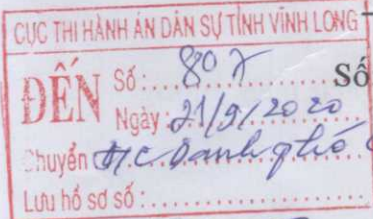 CỤC THI HÀNH ÁN DÂN SỰ TỈNH VĨNH LONG
ĐẾN Số: 807
Ngày: 21/9/2020
Chuyển
Lưu hồ sơ số:
Số